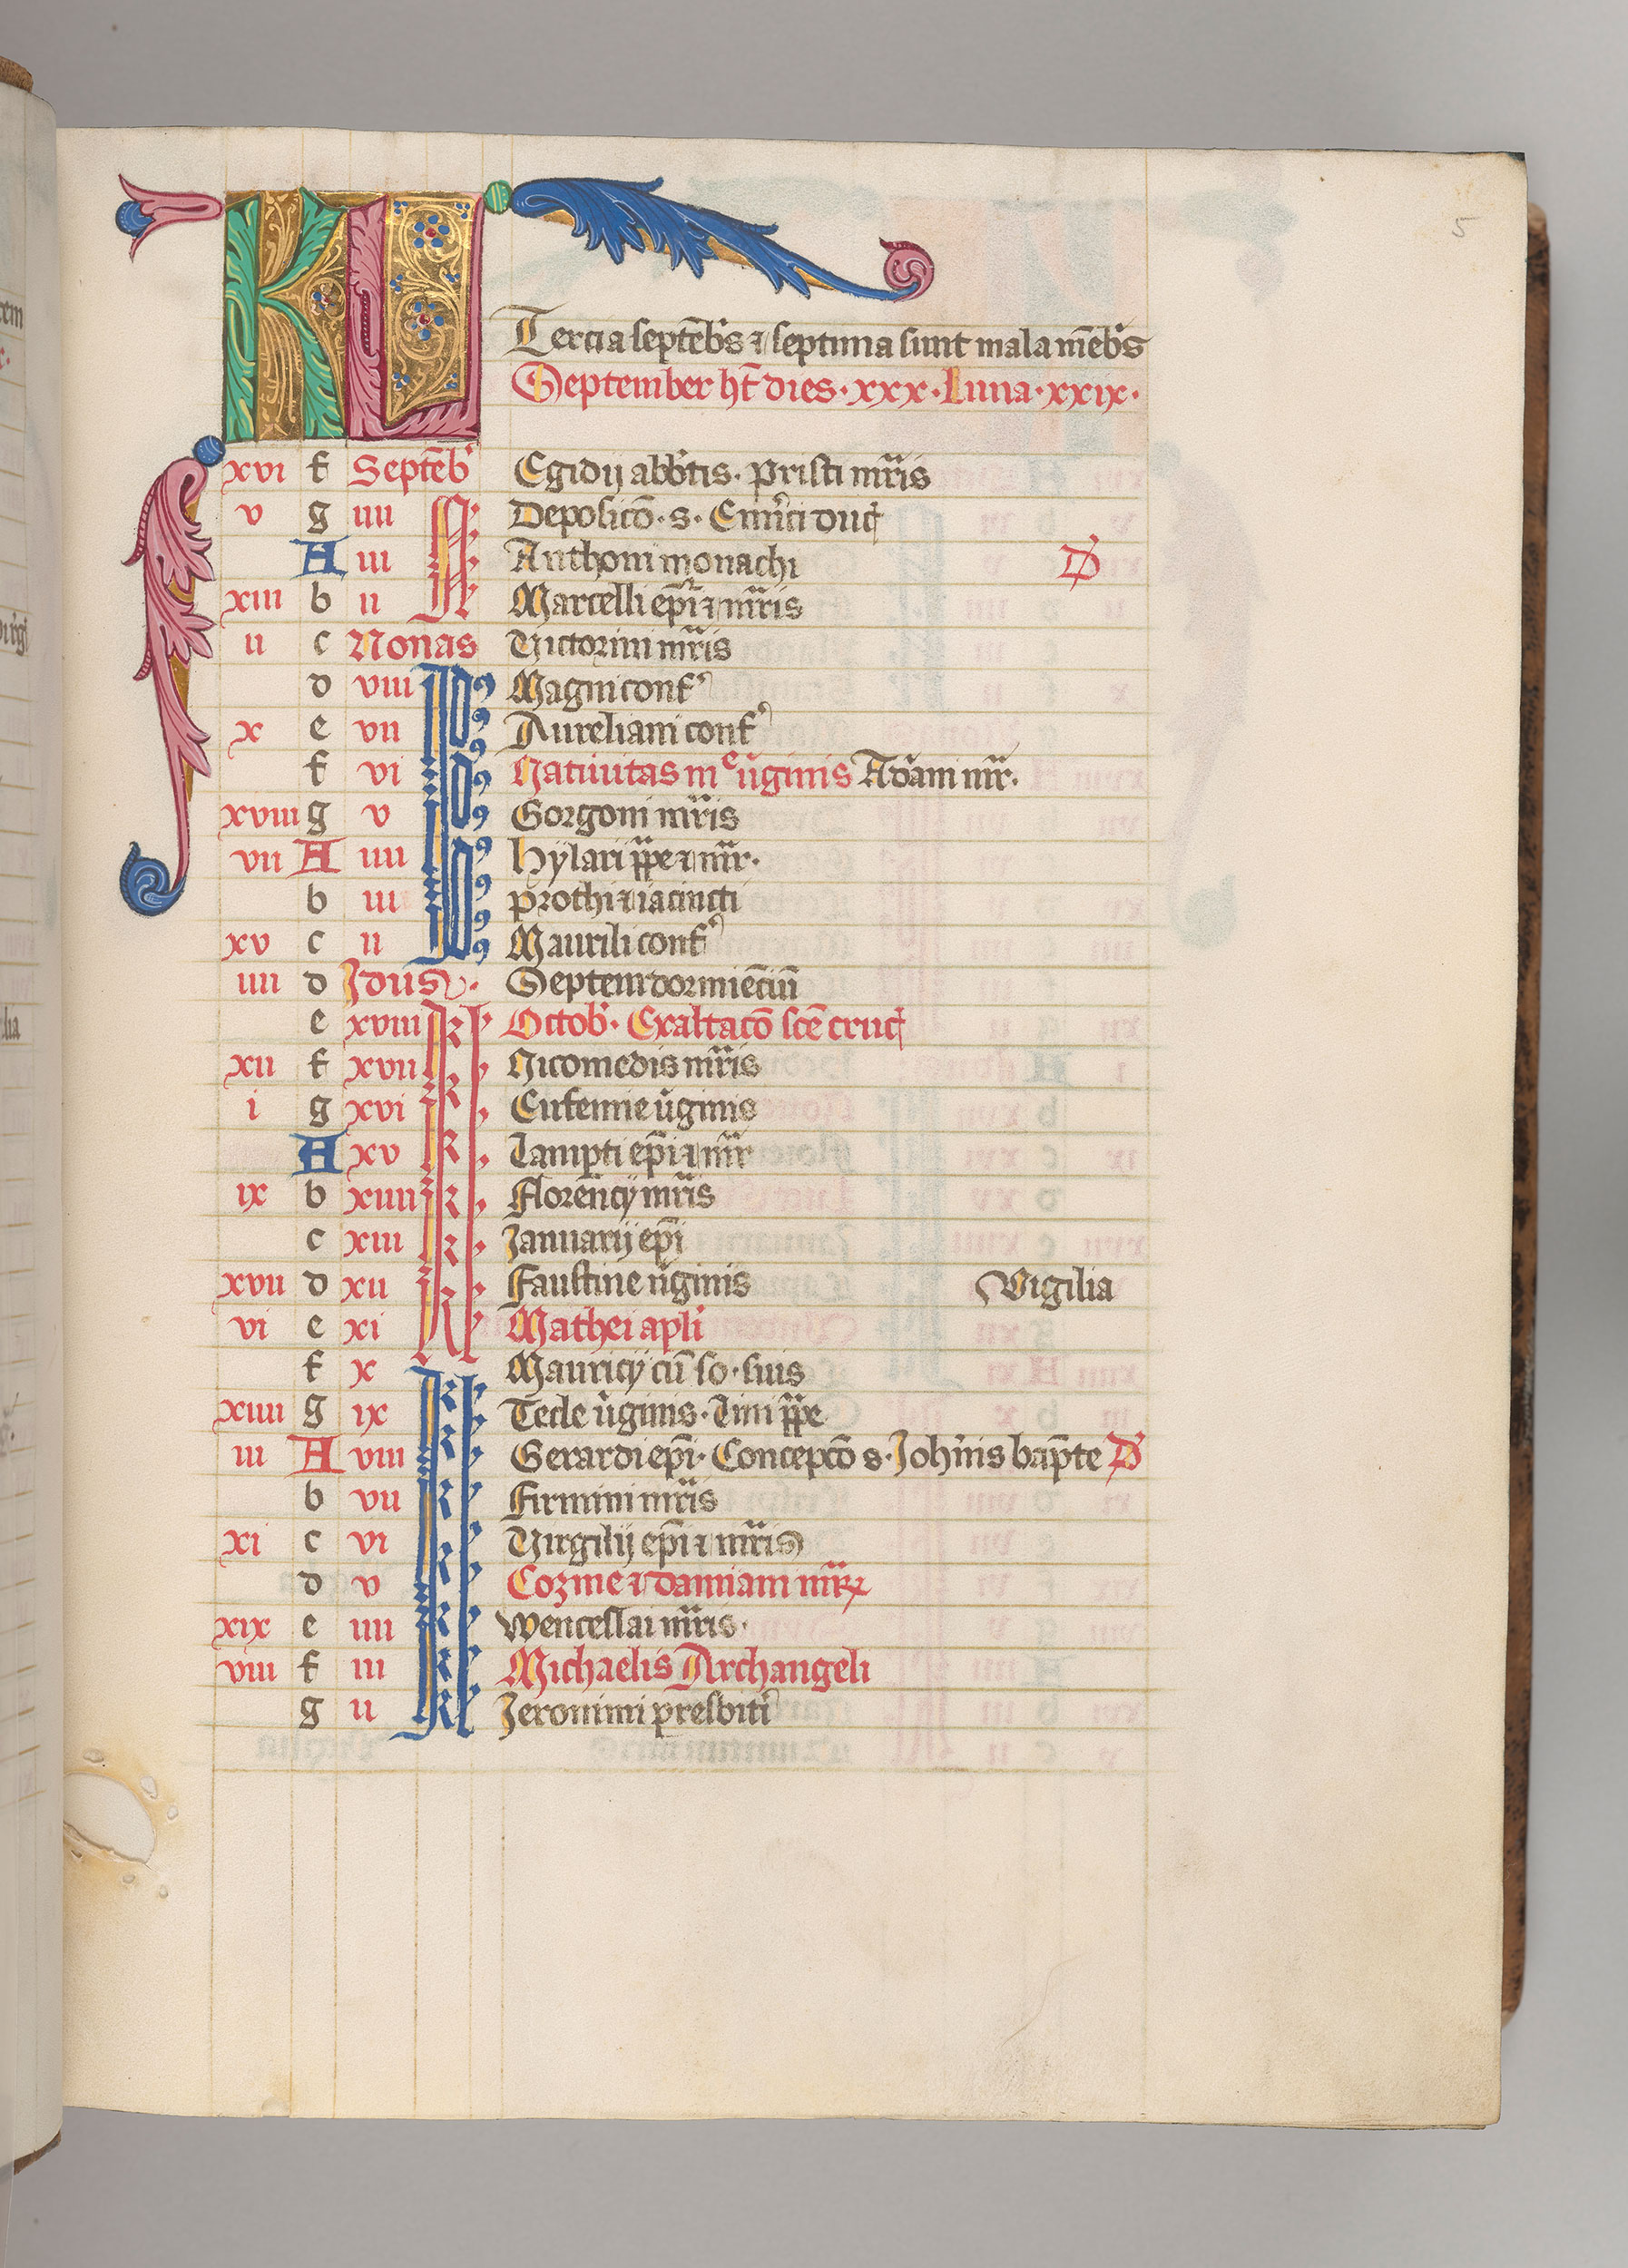 5
KL
Tercia septēbꝰs ⁊ septima sunt mala mēbꝰs
September hꝫt dies · xxx · Luna · xxix ·
xvi f Septēbꝰ Egidij abbꝰtis · Prisci mꝛ̄is
v g iiii N Deposicō · s ·
A iii Anthoni monachi D
xiii b ii Marcelli ep̄i ⁊ mꝛ̄is
ii c Nonas Victorini mꝛ̄is
d viii Idꝰ Magni confꝰ
x e vii Idꝰ Aureliani confꝰ
f vi Idꝰ Natiuitas m e ūginis Adriani mr̄ ·
xviii g v Idꝰ Gorgoni mꝛ̄is
vii A iiii Idꝰ Hylari p̄pe ⁊ mr̄ ·
b iii Idꝰ Prothi ⁊ iacincti
xv c ii Idꝰ Maurili confꝰ
iiii d Idus · Septem dormiēciū
e xviii kl Octobꝰ · Exaltacō scē crucꝭ
xii f xvii kl Nicomedis mꝛ̄is
i g xvi kl Eufemie ūginis
A xv kl Lampti ep̄i ⁊ mr̄
ix b xiiii kl Florencij mꝛ̄is
c xiii kl Januarij ep̄i
xvii d xii kl Faustine ūginis Vigilia
vi e xi kl Mathei apl̄i
f x kl Mauricij cū so · suis
xiiii g ix kl Tecle ūginis · Lini p̄pe
iii A viii kl Gerardi ep̄i · Concepcō s · Joh̄nis bap̄te D
b vii kl Firmini mꝛ̄is
xi c vi kl Virgilij ep̄i ⁊ mꝛ̄is
d v kl Cozme ⁊ damiani mr̄ꝝ
xix e iiii kl Wenceslai mꝛ̄is ·
viii f iii kl Michaelis Archangeli
g ii kl Jeronimi presbitꝰi